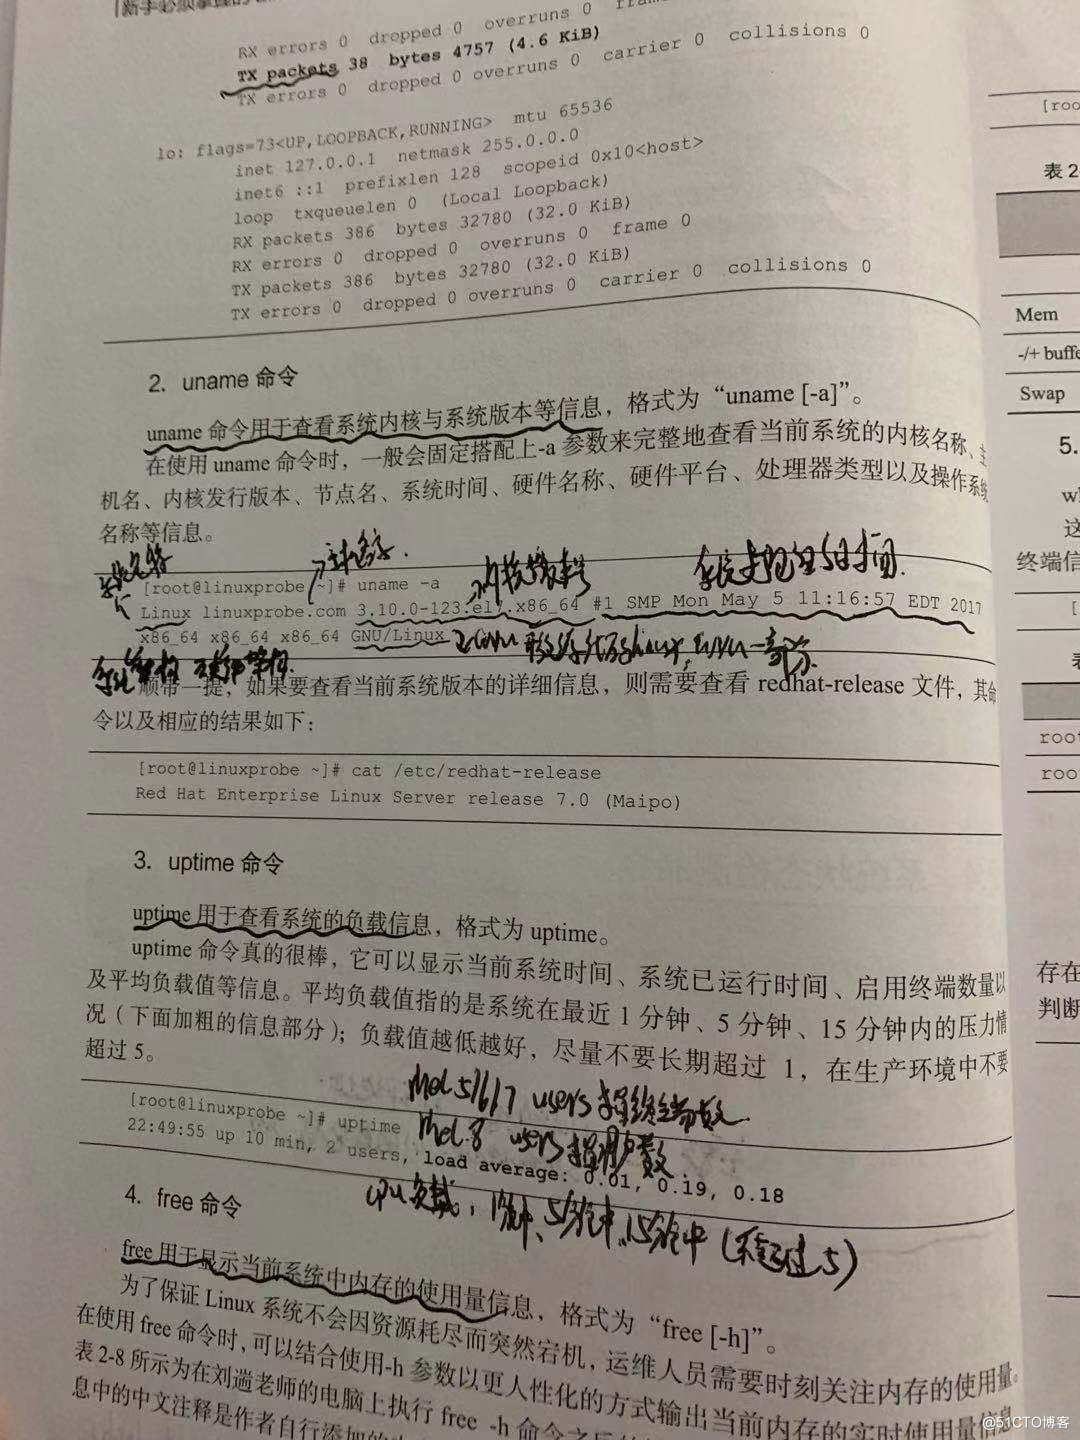 新手必须掌握的
RX errors 0 dropped 0 overruns 0 frame
TX packets 38 bytes 4757 (4.6 KiB)
TX errors 0 dropped 0 overruns 0 carrier 0 collisions 0
lo: flags=73<UP,LOOPBACK,RUNNING> mtu 65536
inet 127.0.0.1 netmask 255.0.0.0
inet6 ::1 prefixlen 128 scopeid 0x10<host>
loop txqueuelen 0 (Local Loopback)
RX packets 386 bytes 32780 (32.0 KiB)
RX errors 0 dropped 0 overruns 0 frame 0
TX packets 386 bytes 32780 (32.0 KiB)
TX errors 0 dropped 0 overruns 0 carrier 0 collisions 0
2. uname 命令
uname 命令用于查看系统内核与系统版本等信息，格式为“uname [-a]”。
在使用 uname 命令时，一般会固定搭配上-a 参数来完整地查看当前系统的内核名称、主
机名、内核发行版本、节点名、系统时间、硬件名称、硬件平台、处理器类型以及操作系统
名称等信息。
[root@linuxprobe ~]# uname -a
Linux linuxprobe.com 3.10.0-123.el7.x86_64 #1 SMP Mon May 5 11:16:57 EDT 2017
x86_64 x86_64 x86_64 GNU/Linux
顺带一提，如果要查看当前系统版本的详细信息，则需要查看 redhat-release 文件，其命
令以及相应的结果如下：
[root@linuxprobe ~]# cat /etc/redhat-release
Red Hat Enterprise Linux Server release 7.0 (Maipo)
3. uptime 命令
uptime 用于查看系统的负载信息，格式为 uptime。
uptime 命令真的很棒，它可以显示当前系统时间、系统已运行时间、启用终端数量以
及平均负载值等信息。平均负载值指的是系统在最近 1 分钟、5 分钟、15 分钟内的压力情
况（下面加粗的信息部分）；负载值越低越好，尽量不要长期超过 1，在生产环境中不要
超过 5。
5/6/7 users 指终端数
[root@linuxprobe ~]# uptime
8 users 指用户数
22:49:55 up 10 min, 2 users, load average: 0.01, 0.19, 0.18
CPU负载，1分钟、5分钟、15分钟（不超过5）
4. free 命令
free 用于显示当前系统中内存的使用量信息，格式为“free [-h]”。
为了保证 Linux 系统不会因资源耗尽而突然宕机，运维人员需要时刻关注内存的使用量。
在使用 free 命令时，可以结合使用-h 参数以更人性化的方式输出当前内存的实时使用量信息
表 2-8 所示为在刘遄老师的电脑上执行 free -h 命令之后的
息中的中文注释是作者自行添加的
[roo
表 2
Mem
-/+ buffe
Swap
5.
w
这
终端信
[
表
root
roo
存在
判断
@51CTO博客